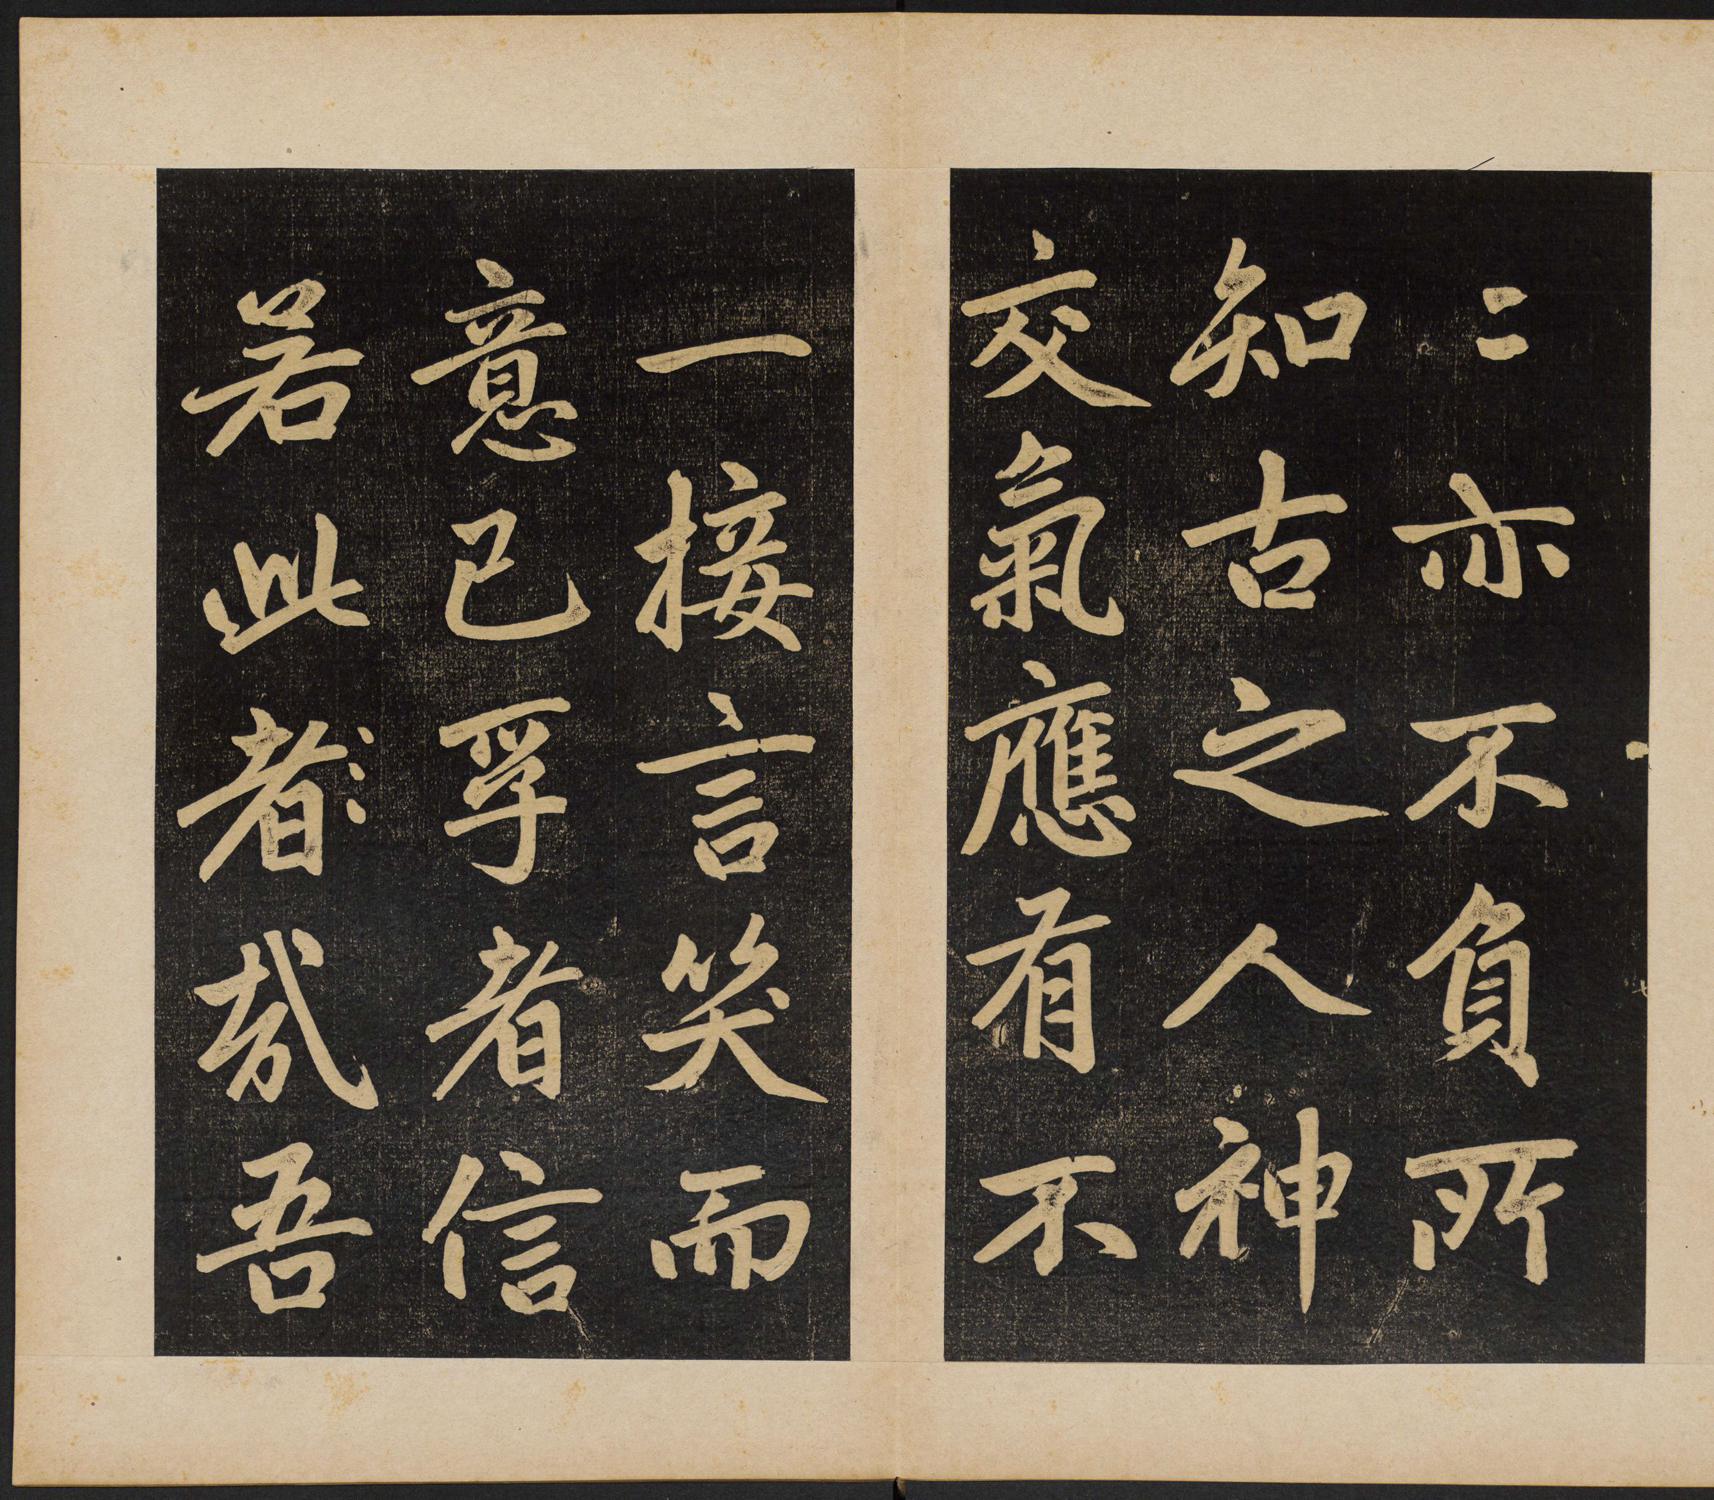 〻亦不負所
知古之人神
交氣應有不
一接言笑而
意已孚者信
若此者哉吾